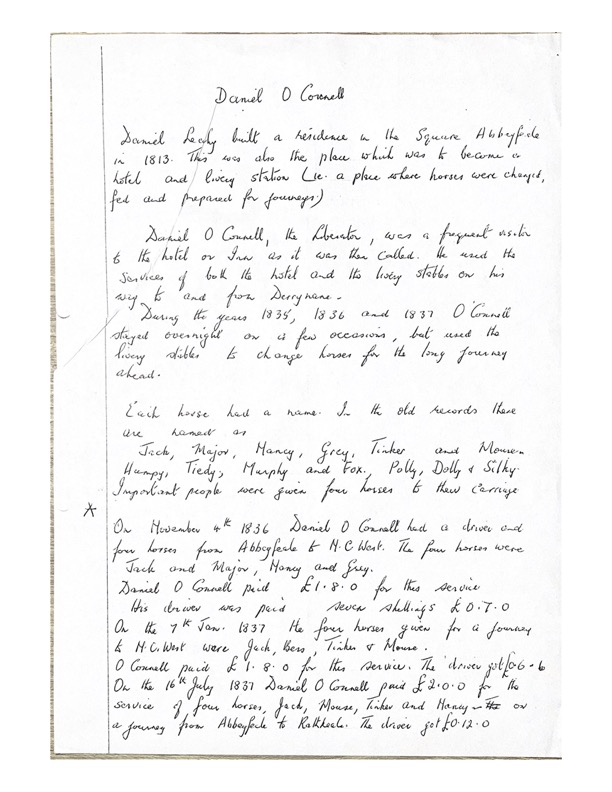 Daniel O Connell
Daniel Leahy built a residence in the Square Abbeyfeale
in 1813. This was also the place which was to become a
hotel and livery station (ie. a place where horses were changed,
fed and prepared for journeys)
Daniel O Connell, the Liberator, was a frequent visitor
to the hotel or Inn as it was then called. He used the
services of both the hotel and the livery stables on his
way to and from Derrynane.
During the years 1835, 1836 and 1837 O'Connell
stayed overnight on a few occasions, but used the
livery stables to change horses for the long journey
ahead.
Each horse had a name. In the old records these
are named as
Jack, Major, Nancy, Grey, Tinker and Mouse.
Humpy, Tiedy, Murphy and Fox, Polly, Dolly & Silky.
Important people were given four horses to their carriage
*
On November 4th 1836 Daniel O Connell had a driver and
four horses from Abbeyfeale to N.C. West. The four horses were
Jack and Major, Nancy and Grey.
Daniel O Connell paid £1.8.0 for this service
His driver was paid seven shillings £0.7.0
On the 7th Jan. 1837 the four horses given for a journey
to N.C. West were Jack, Bess, Tinker & Mouse.
O Connell paid £1.8.0 for this service. The driver got £0.6.6
On the 16th July 1837 Daniel O Connell paid £2.0.0 for the
service of four horses, Jack, Mouse, Tinker and Nancy on
a journey from Abbeyfeale to Rathkeale. The driver got £0.12.0